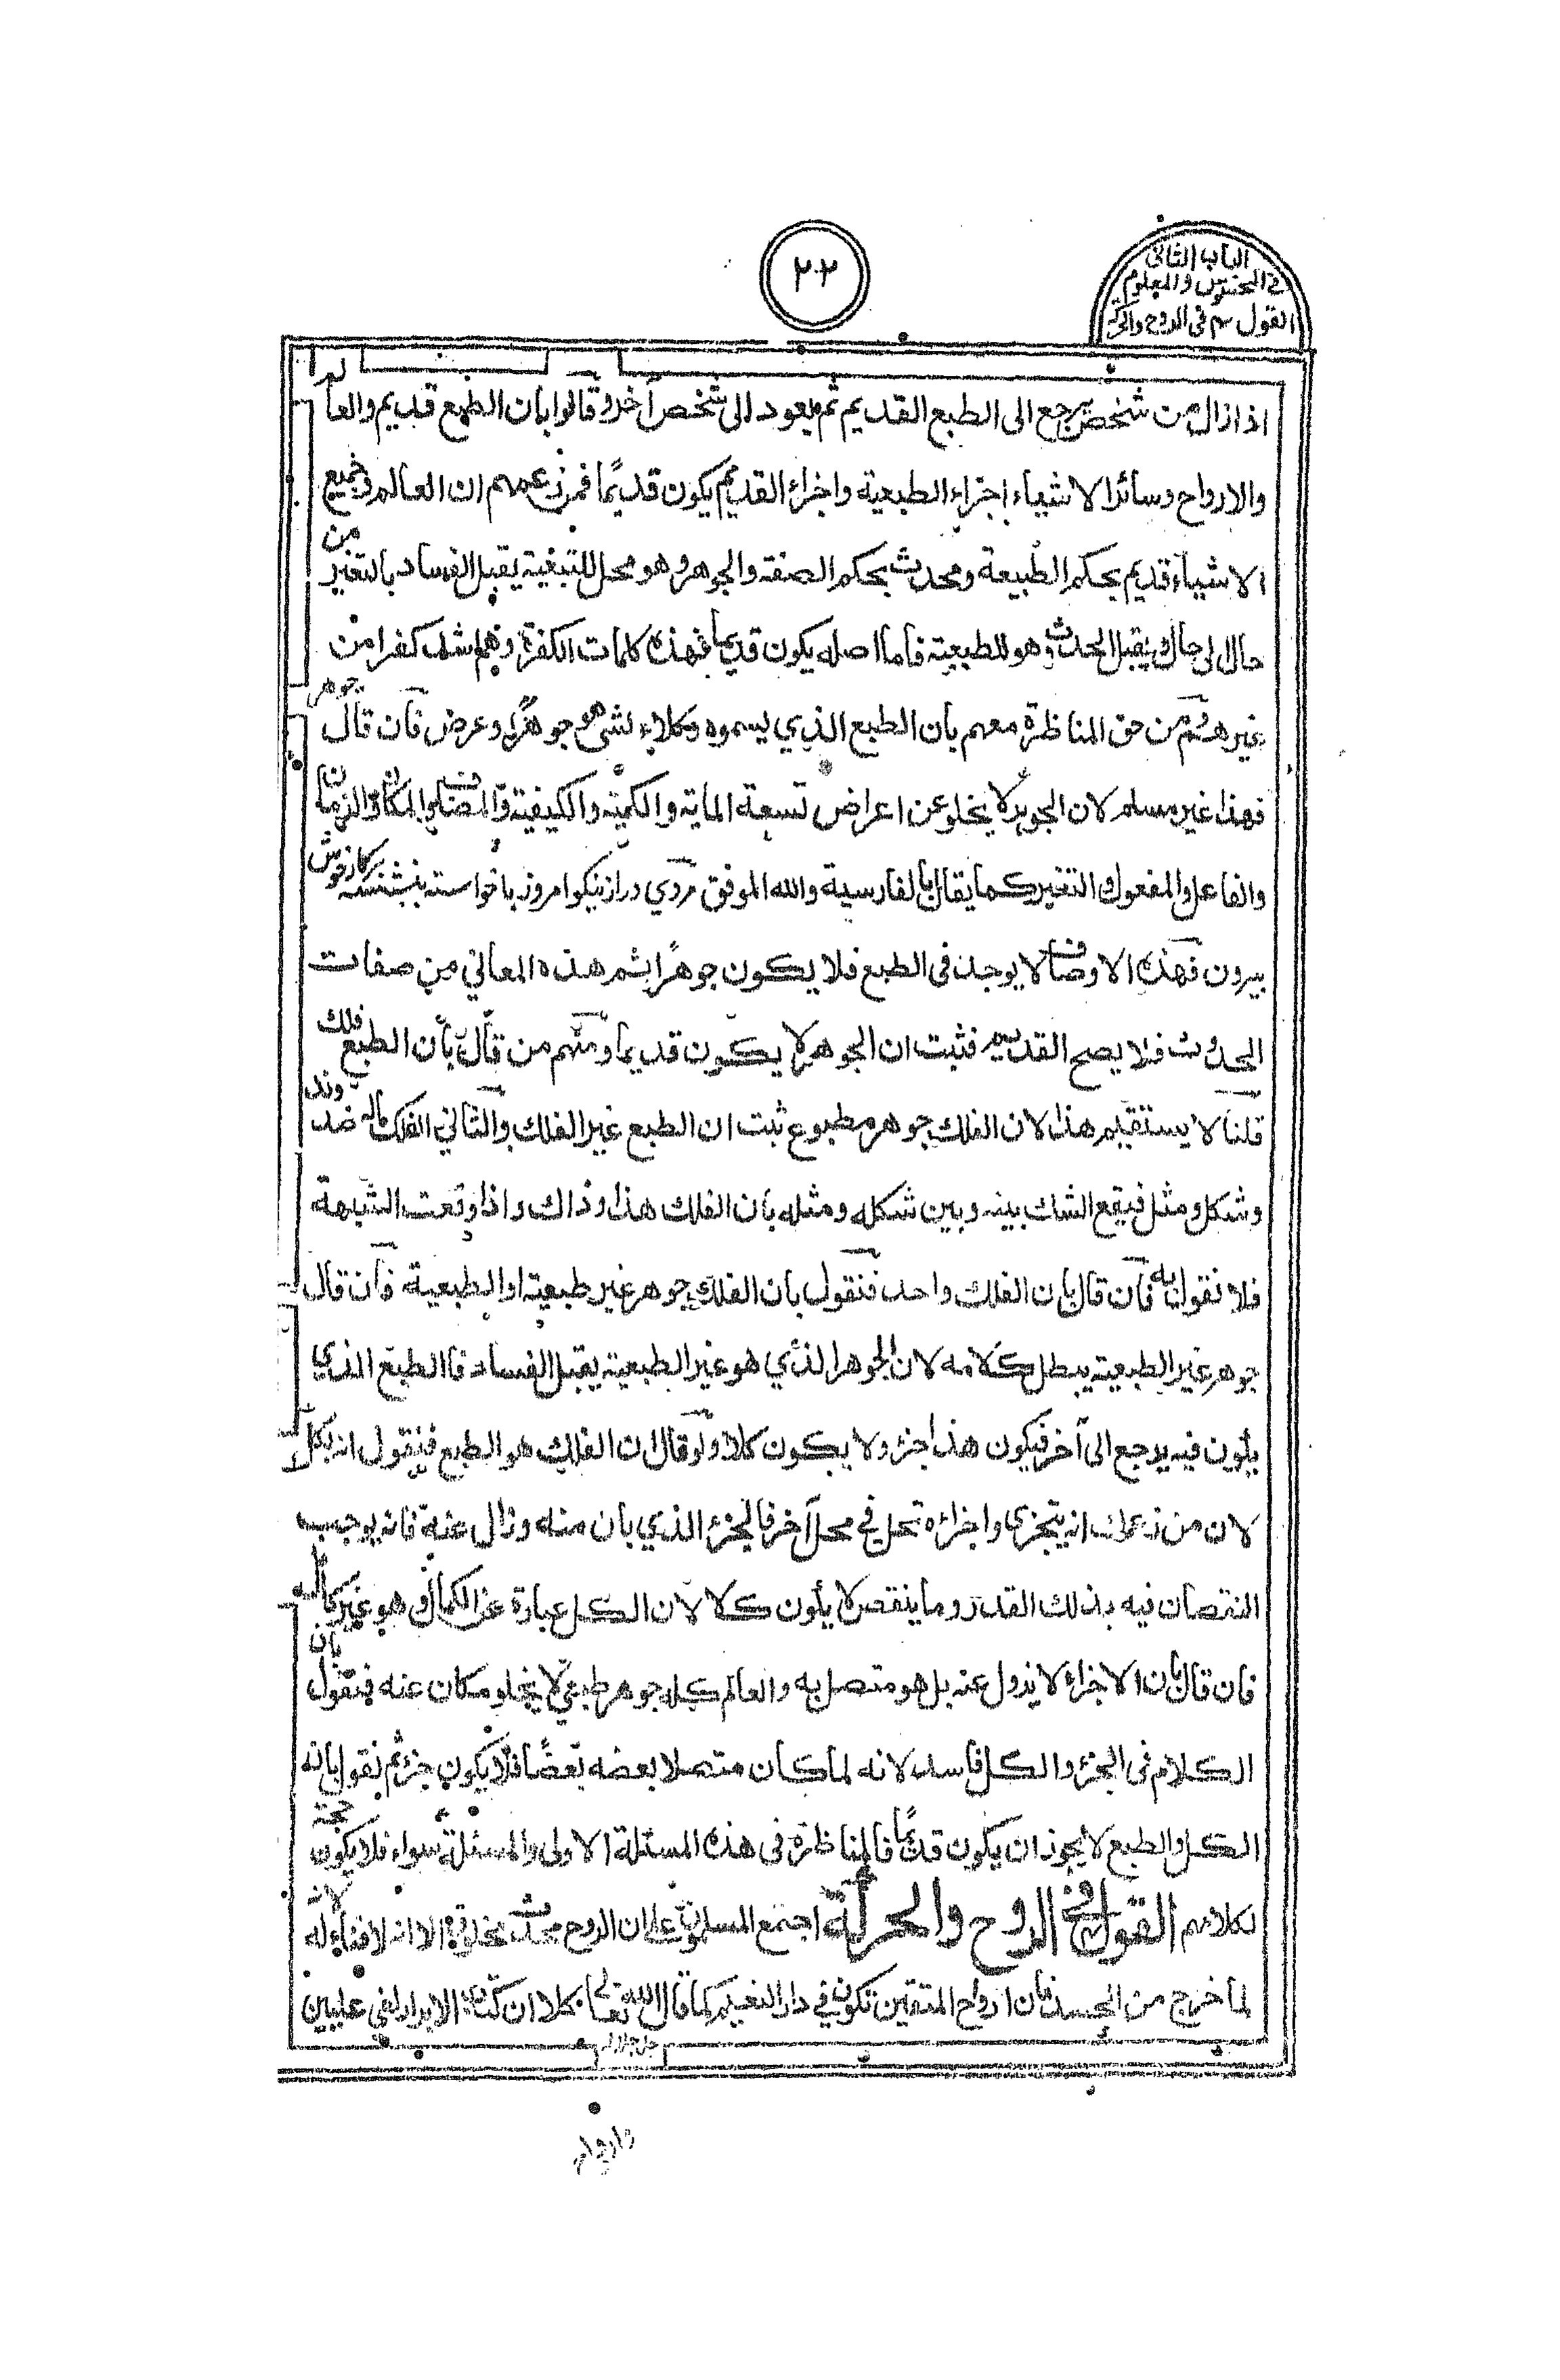 الباب الثانى
فى المحسوس والمعلوم
القول ٣ فى الروح والحركة
٢٠٢
اذا زال من شخص يرجع الى الطبع القديم ثم يعود الى شخص آخر وقالوا بان الطبع قديم والعالم
والارواح وسائر الاشياء اجزاء الطبعية واجزاء القديم يكون قديمًا فمن زعمهم ان العالم فى جميع
الاشياء قديم بحكم الطبيعة ومحدث بحكم الصفة والجوهر وهو محل للتبغية يقبل الفساد بالتغير من
حال الى حال ويقبل الحدث وهو للطبعية فأما اصله يكون قديما فهذه كلمات الكفرة وهم اشد كفرا من
غيرهم ثم من حق المناظرة معهم بان الطبع الذي يسموه وكلاء لشئ هو جوهر او عرض فان قال جوهر
فهذا غير مسلم لان الجوهر لا يخلو عن اعراض تسعة الماية والكمية والكيفية والمضاف والمكان والزمان
والفاعل والمفعول والتغير كما يقال بالفارسية والله الموفق مردي دراز نيكو امروز باخواسته بنشسته
بيرون فهذه الاوصاف لا يوجد فى الطبع فلا يكون جوهرًا بثم هذه المعاني من صفات
الحدوث فلا يصح القديم فثبت ان الجوهر لا يكون قديما ومنهم من قال بأن الطبع فلك
قلنا لا يستقيم هذا لان الفلك جوهر مطبوع ثبت ان الطبع غير الفلك والثاني الفلك ماله ضد وند
وشكل ومثل فيقع الشك بينه وبين شكله ومثله بان الفلك هذا وذاك واذا وقعت الشبهة
فلا نقول به فان قال بان الفلك واحد فنقول بان الفلك جوهر غير طبعية او الطبعية فان قال
جوهر غير الطبعية يبطل كلامه لان الجوهر الذي هو غير الطبعية يقبل الفساد فاالطبع الذي
يكون فيه يرجع الى آخر فيكون هذا جزء ولا يكون كلا ولو قال ان الفلك هو الطبع فنقول
لان من زعمك انه يتجزى واجزاءه تحل في محل آخر فالجزء الذي بان منه وزال عنه فانه يوجب
النقصان فيه بذلك القدر وما ينقص لا يكون كلا لان الكل عبارة عن الكمال وهو غير كمال
فان قال بان الاجزاء لا يزول عنه بل هو متصل به والعالم كله جوهر طبعي لا يخلو مكان عنه فنقول بان
الكلام فى الجزء والكل فاسد لانه لما كان متصلا بعضه بعضًا فلا يكون جزء ثم نقول بانه
الكل والطبع لا يجوز ان يكون قديمًا فالمناظرة فى هذه المسئلة الاولى والمسئلة سواء فلا يكون حجة
لكلامهم القول في الروح والحركة اجتمع المسلمون على ان الروح محدث مخلوق الا انه لا فناء له لانه
لما خرج من الجسد فان ارواح المتقين تكون في دار النعيم كما قال الله تعالى كلا ان كتاب الابرار لفي عليين
جل جلاله